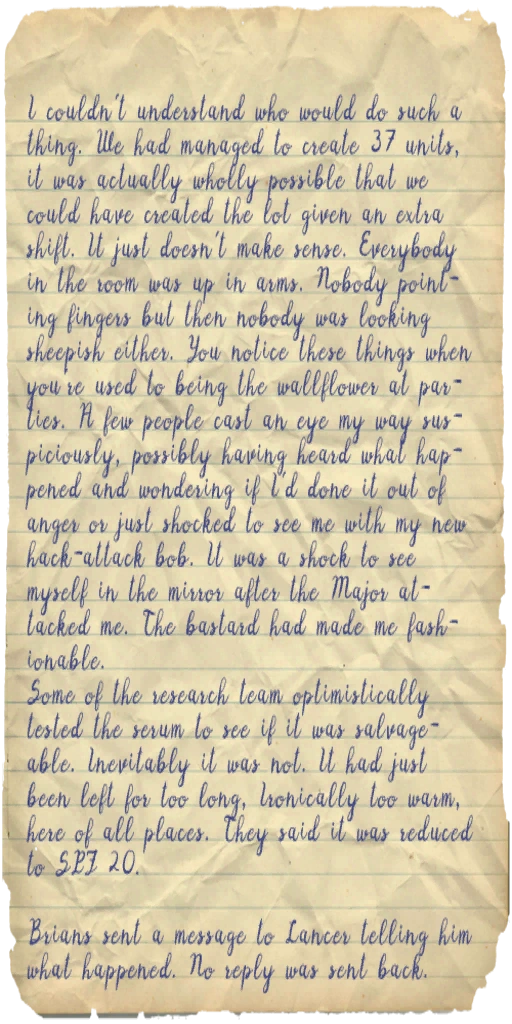 I couldn't understand who would do such a
thing. We had managed to create 37 units,
it was actually wholly possible that we
could have created the lot given an extra
shift. It just doesn't make sense. Everybody
in the room was up in arms. Nobody point-
ing fingers but then nobody was looking
sheepish either. You notice these things when
you're used to being the wallflower at par-
ties. A few people cast an eye my way sus-
piciously, possibly having heard what hap-
pened and wondering if I'd done it out of
anger or just shocked to see me with my new
hack-attack bob. It was a shock to see
myself in the mirror after the Major at-
tacked me. The bastard had made me fash-
ionable.
Some of the research team optimistically
tested the serum to see if it was salvage-
able. Inevitably it was not. It had just
been left for too long, Ironically too warm,
here of all places. They said it was reduced
to SPF 20.
Brians sent a message to Lancer telling him
what happened. No reply was sent back.